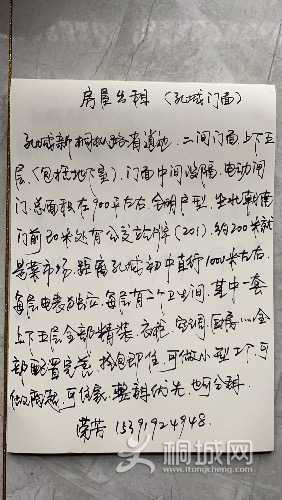 房屋出租（孔城门面）
孔城新桐枞路有消防，二间门面上下五
层（包括地下室），门面中间没隔，电动闸
门，总面积在900平左右，全明户型，坐北朝南
门前30米处有公交站牌（201），约200米就
是菜市场，距离孔城初中直行1000米左右，
每层电表独立，每层有一个卫生间，其中一套
上下五层全部精装，衣柜，空调，厨房……全
部配置完善，拎包即住，可做小型工厂，可
做，可住家，整租优先，也可分租，
荣芳 15391924948.
桐城网
www.itongcheng.com